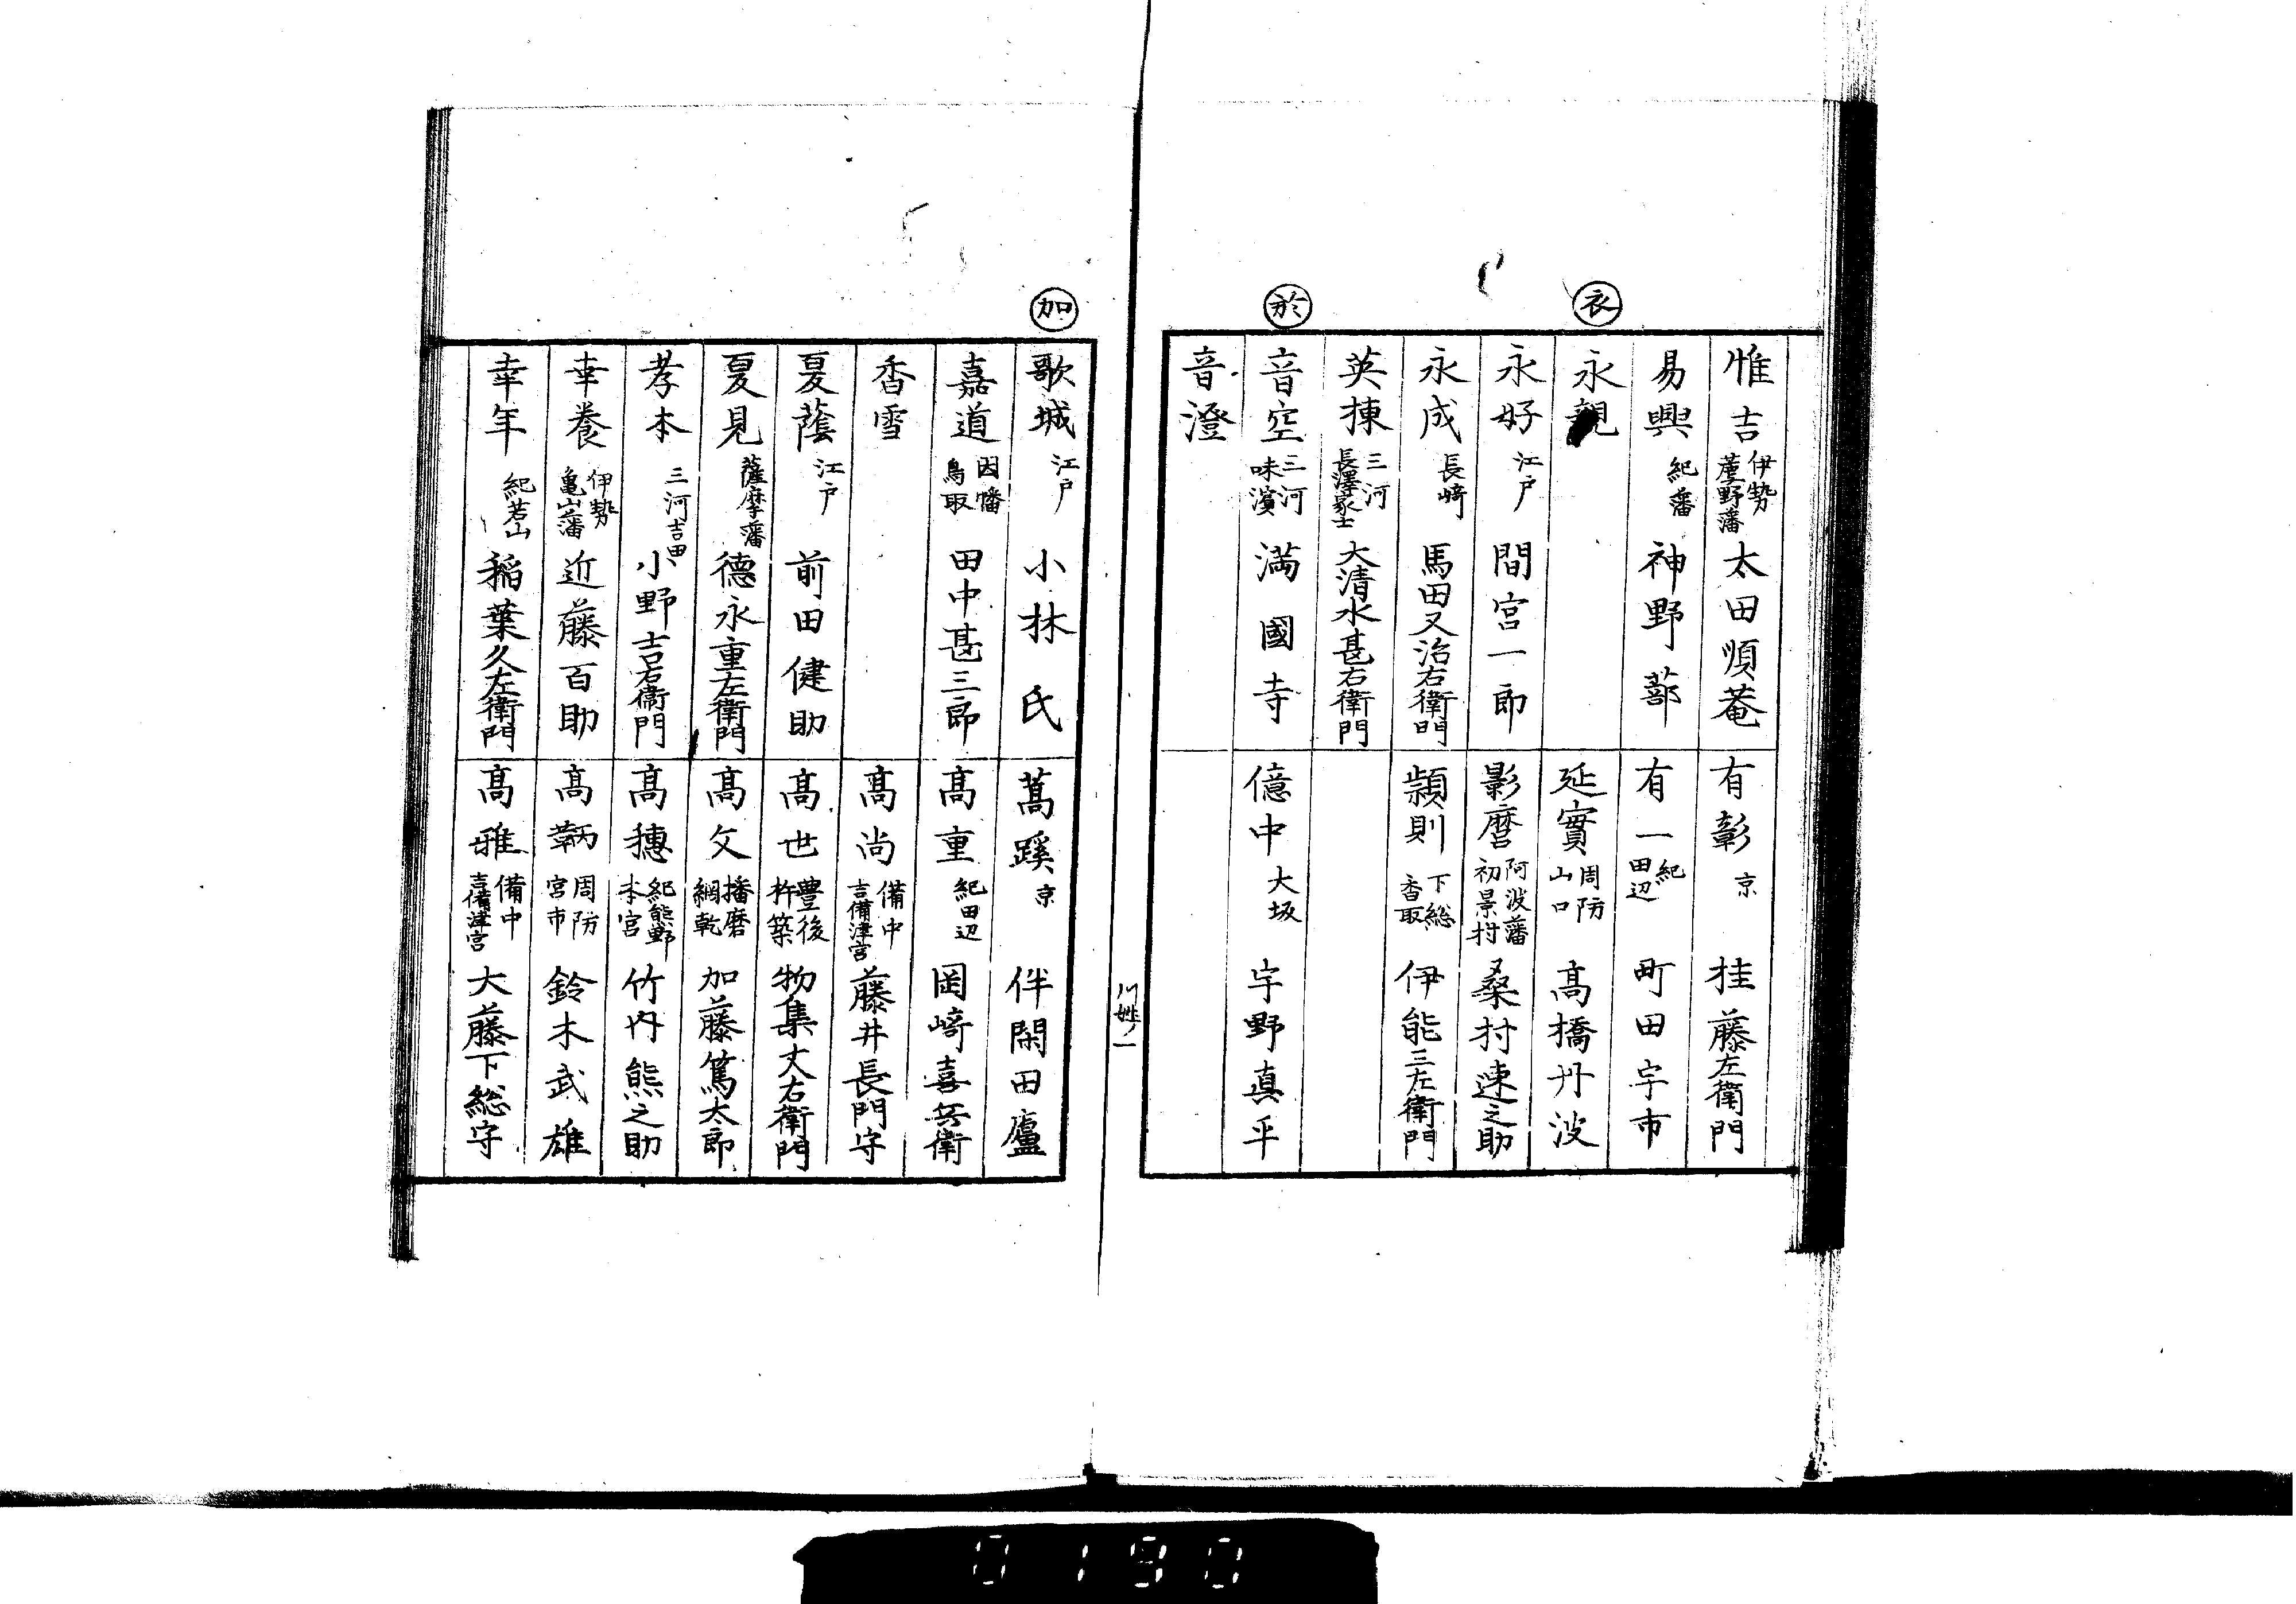 惟吉 伊勢薦野藩 太田順菴
易興 紀藩 神野蔀
衣
永親
永好 江戸 間宮一郎
永成 長崎 馬田又治右衛門
英棟 三河長澤家士 大清水甚右衛門
於
音空 三河味濱 満國寺
音澄
有彰 京 桂藤左衛門
有一 紀田辺 町田宇市
延實 周防山口 髙橋丹波
影麿 阿波藩初景村 桑村速之助
頴則 下総香取 伊能三左衛門
億中 大坂 宇野真平
加
歌城 江戸 小林氏
嘉道 因幡鳥取 田中甚三郎
香雪
夏蔭 江戸 前田健助
夏見 薩摩藩 德永重左衛門
孝本 三河吉田 小野吉右衛門
幸養 伊勢亀山藩 近藤百助
幸年 紀若山 稲葉久左衛門
蒿蹊 京 伴閑田廬
髙重 紀田辺 岡﨑喜兵衛
髙尚 備中吉備津宮 藤井長門守
髙世 豊後杵築 物集丈右衛門
髙文 播磨網乾 加藤篤太郎
髙穂 紀熊野本宮 竹内熊之助
髙鞆 周防宮市 鈴木武雄
髙雅 備中吉備津宮 大藤下総守
0190